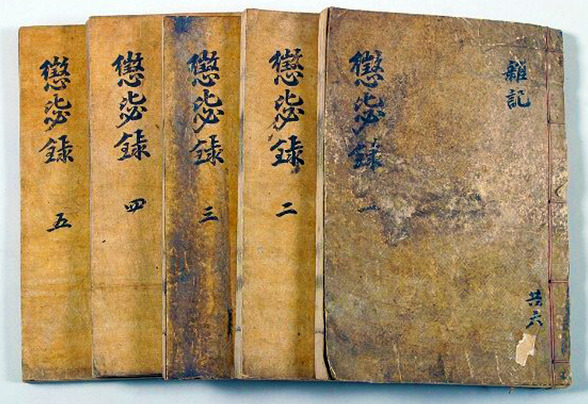 雜記
共六
懲毖錄 一
懲毖錄 二
懲毖錄 三
懲毖錄 四
懲毖錄 五